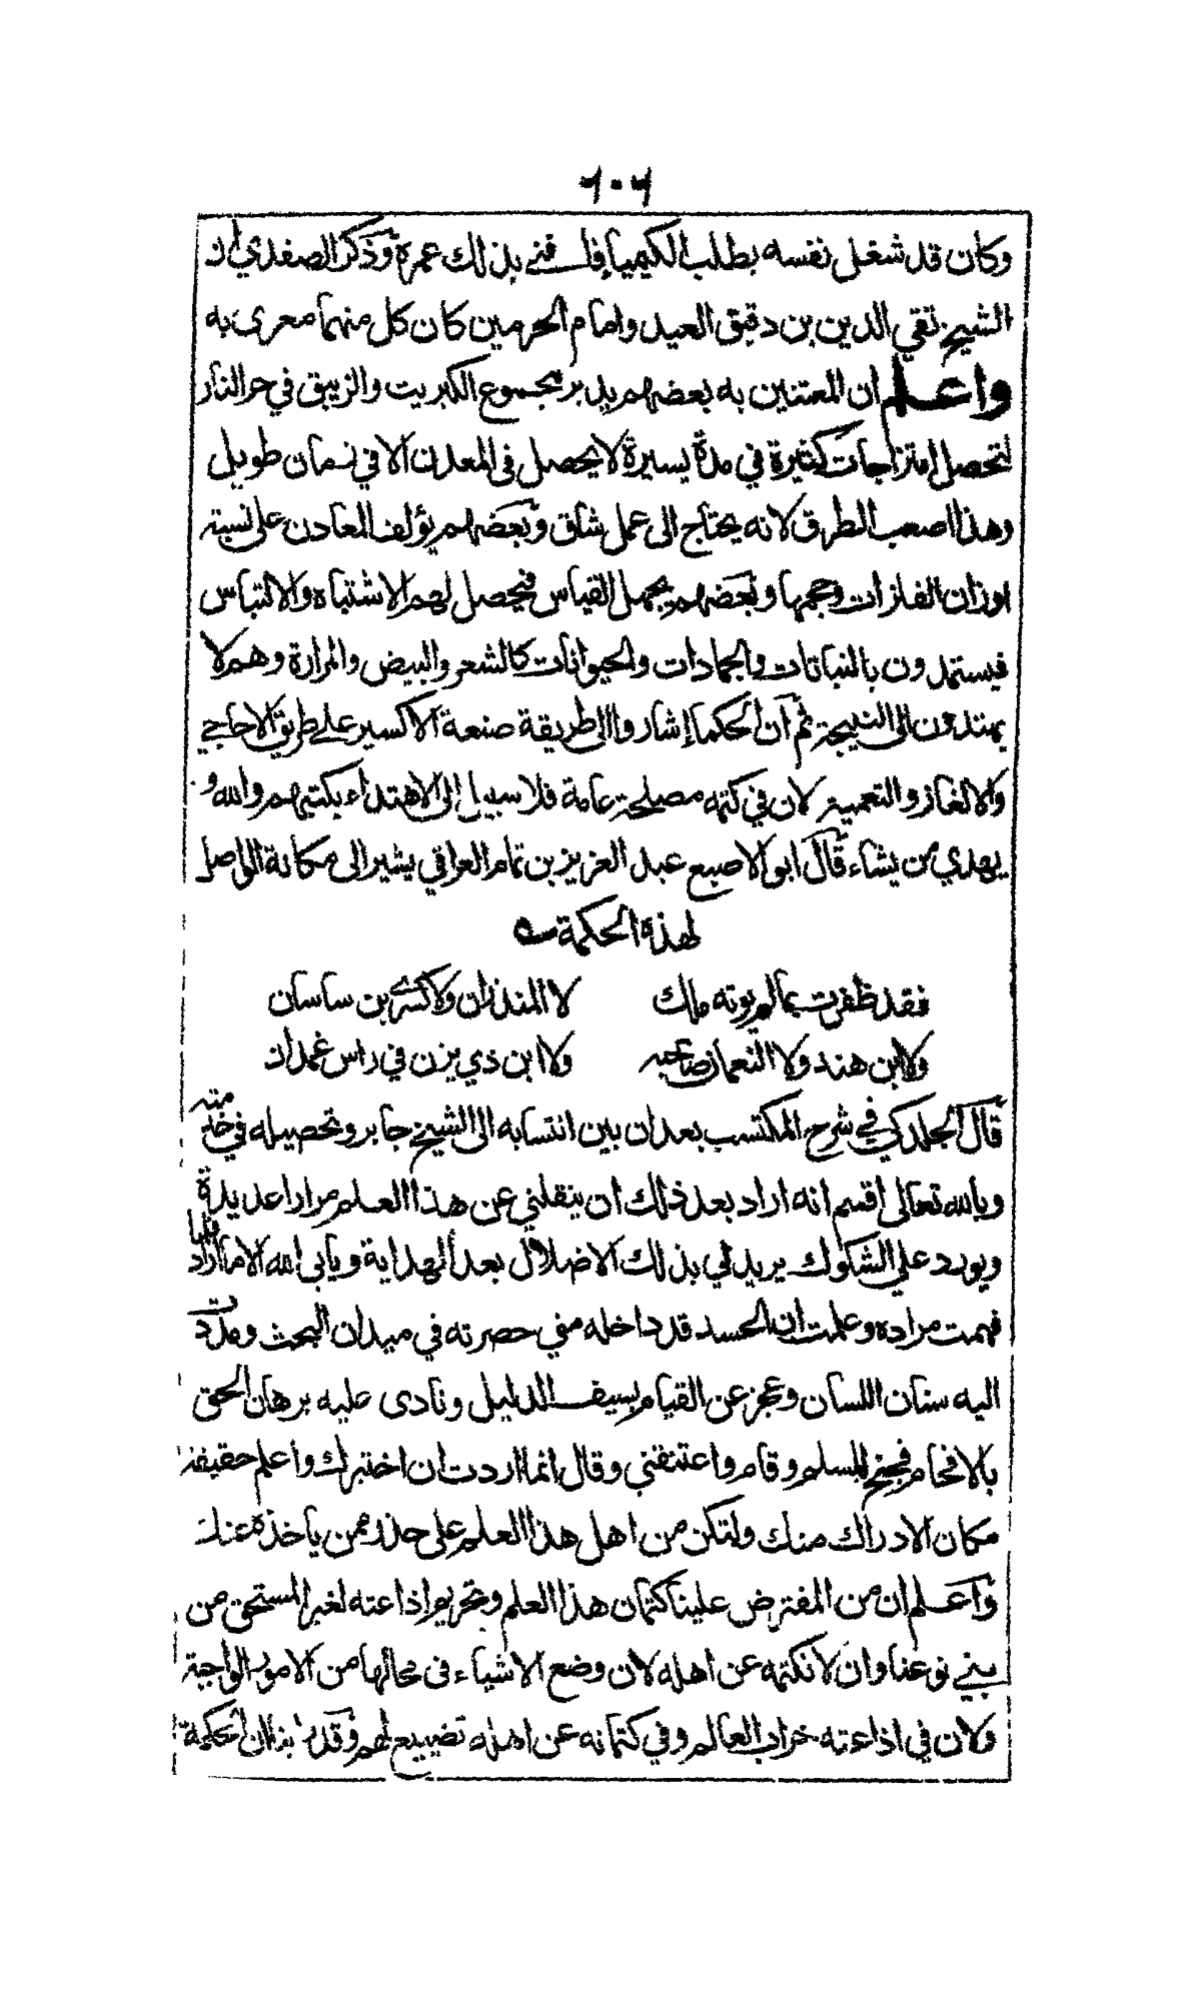 ٦٠٦
وكان قد شغل نفسه بطلب الكيمياء فافنى بذلك عمره وذكر الصفدي ان
الشيخ تقي الدين بن دقيق العيد وامام الحرمين كان كل منهما مغرى به
واعلم ان المعتنين به بعضهم يدبر مجموع الكبريت والزيبق في حر النار
لتحصل امتزاجات كثيرة في مدة يسيرة لا يحصل في المعدن الا في زمان طويل
وهذا اصعب الطرق لانه يحتاج الى عمل شاق وبعضهم يؤلف المعادن على نسبة
اوزان الفلزات وحجمها وبعضهم يجهل القياس فيحصل لهم الاشتباه والالتباس
فيستمدون بالنباتات والجمادات والحيوانات كالشعر والبيض والمرارة وهم لا
يهتدون الى النتيجة ثم ان الحكماء اشاروا الى طريقة صنعة الاكسير على طريق الاحاجي
والالغاز والتعمية لان في كتمه مصلحة عامة فلا سبيل الى الاهتداء بكتبهم والله
يهدي من يشاء قال ابو الاصبع عبد العزيز بن تمام العراقي يشير الى مكانة الواصل
لهذه الحكمة
فقد ظفرت بمالم يوته ملك لا المنذران ولا كسرى بن ساسان
ولا ابن هند ولا النعمان صاحبه ولا ابن ذي يزن في راس غمدان
قال الجلدكي في شرح المكتسب بعد ان بين انتسابه الى الشيخ جابر وتحصيله في خدمته
وبالله تعالى اقسم انه اراد بعد ذلك ان ينقلني عن هذا العلم مرارا عديدة
ويورد علي الشكوك يريد لي بذلك الاضلال بعد الهداية ويابى الله الا ما اراد فلما
فهمت مراده وعلمت ان الحسد قد داخله مني حصرته في ميدان البحث ومددت
اليه سنان اللسان وعجز عن القيام بسيف الدليل ونادى عليه برهان الحق
بالافحام فجنح للسلم وقام واعتنقني وقال انما اردت ان اختبرك واعلم حقيقة
مكان الادراك منك ولتكن من اهل هذا العلم على حذر ممن ياخذه عنك
واعلم ان من المفترض علينا كتمان هذا العلم وتحريم اذاعته لغير المستحق من
بني نوعنا وان لا نكتمه عن اهله لان وضع الاشياء في محالها من الامور الواجبة
ولان في اذاعته خراب العالم وفي كتمانه عن اهله تضييع لهم وقد راينا ان الحكمة